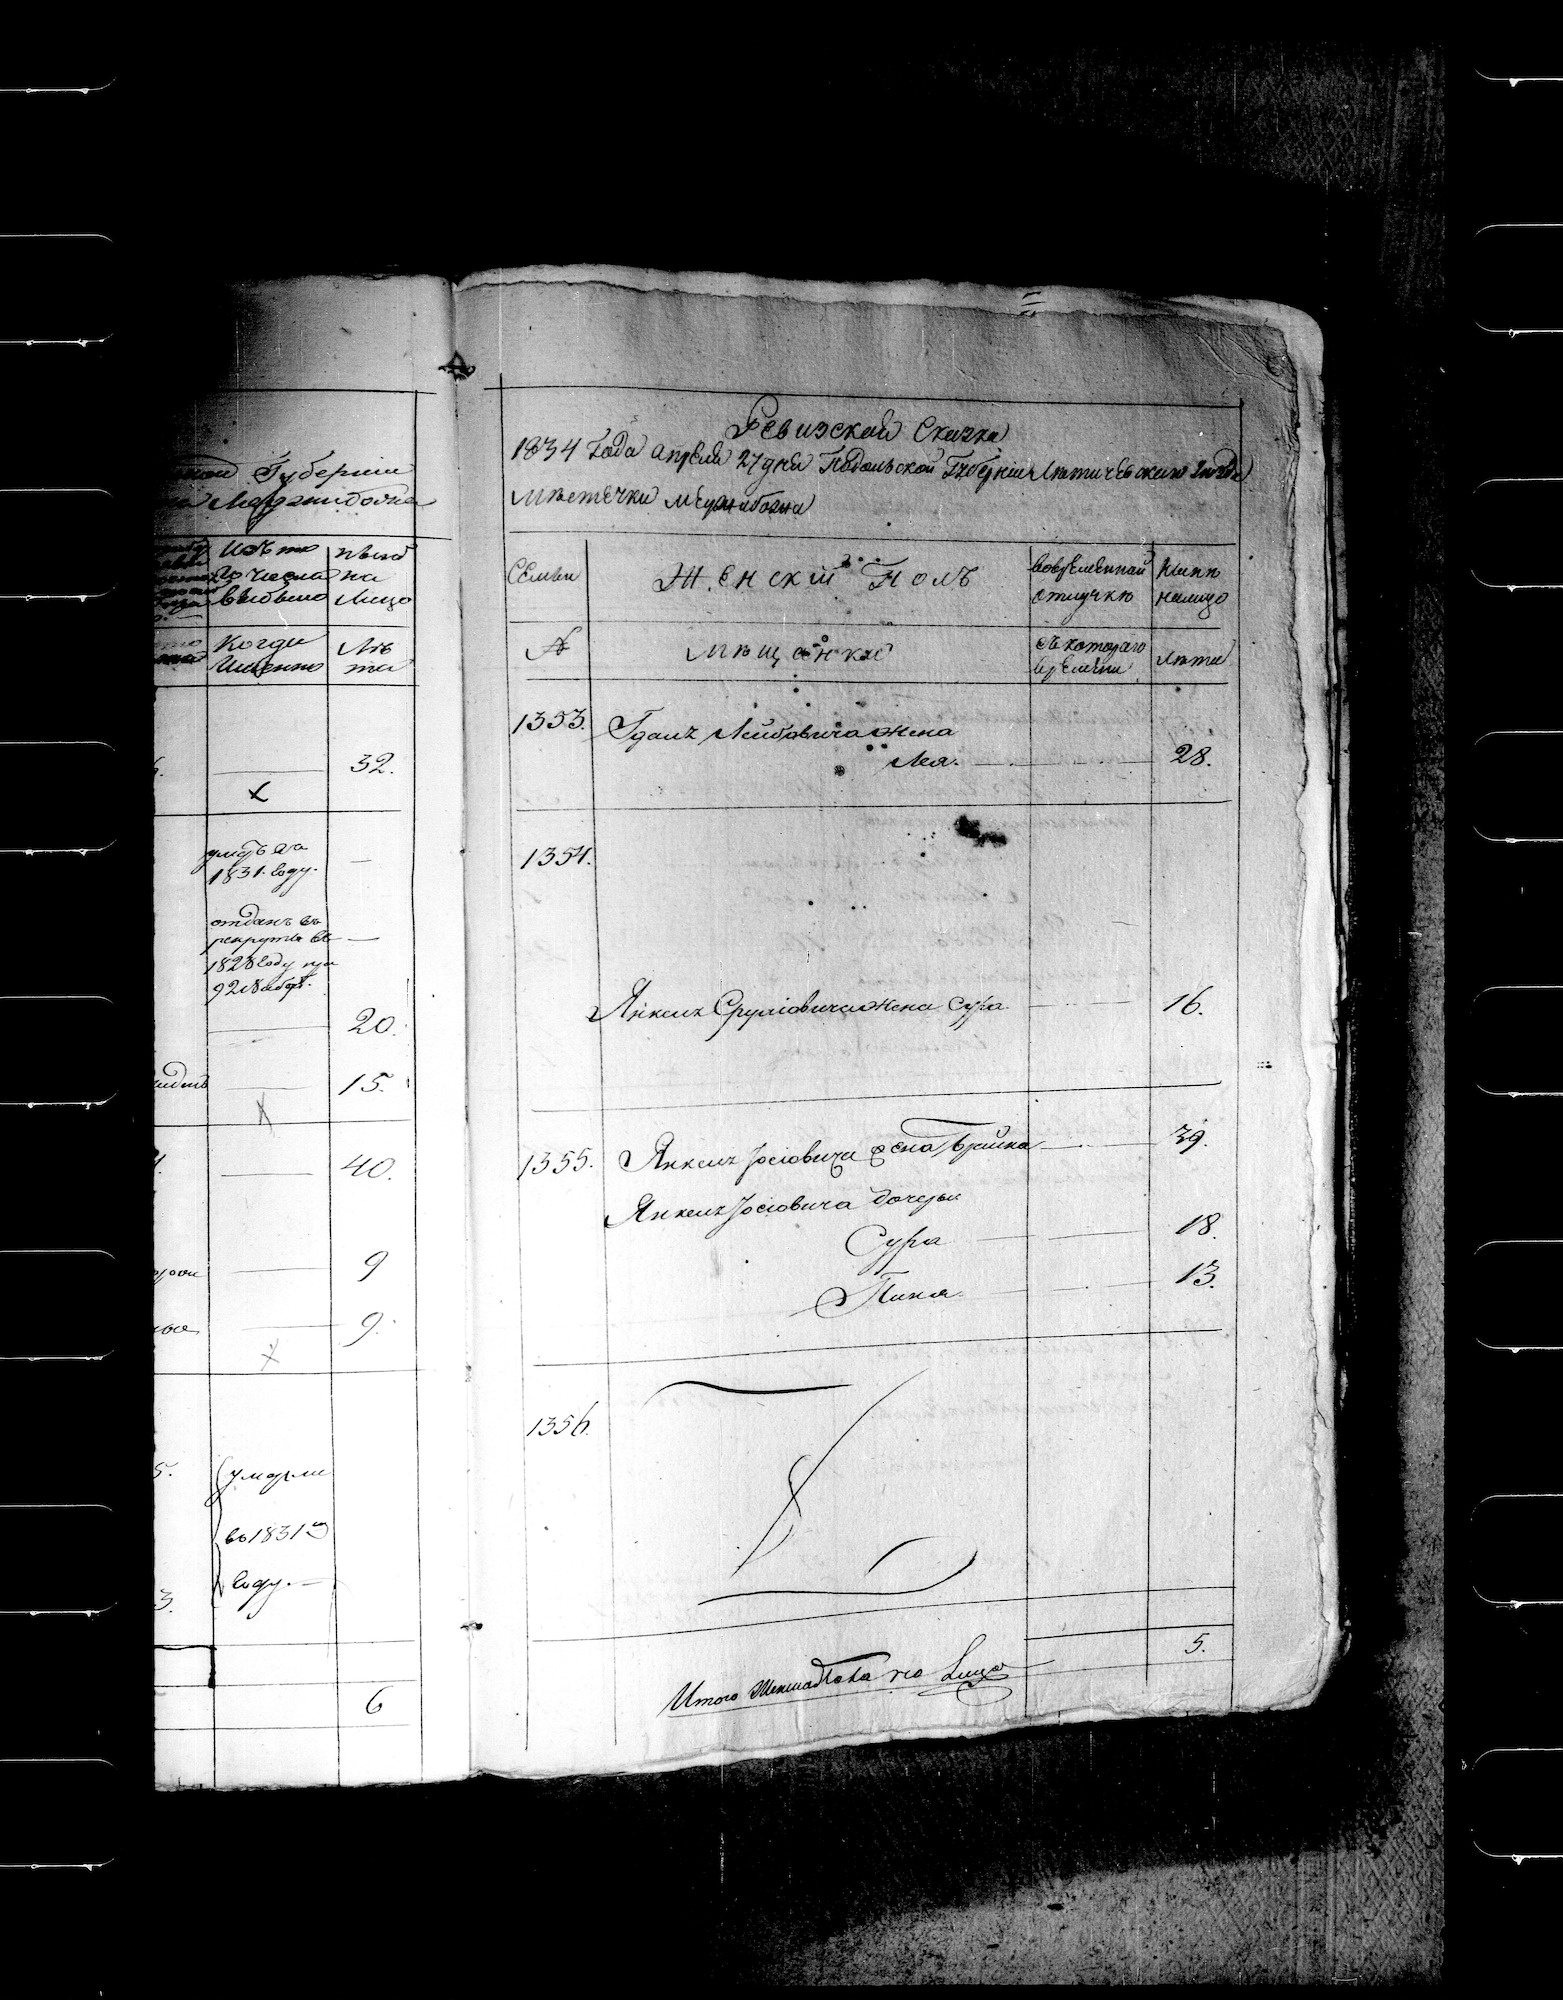 Губерніи
Меджибожа
Изъ то
го числа
выбыло
нынѣ
на
лицо
Когда
Именно
Лѣ
та
32.
умеръ въ
1831. году.
—
отданъ въ
рекруты въ
1828 году
—
20.
15.
40.
9
9.
5.
умерли
въ 1831 м
году. —
3.
6
Ревизская Сказка
1834 Года апреля 27 дня Подольской Губерніи Летичевскаго
мѣстечка Меджибожа
Семьи
Женскій Полъ
во временной
отлучкѣ
Нынѣ
налицо
№
Мѣщанкаѣ
съ котораго
времени
Лѣта
1353. Лейбовича жена
Лея. 28.
1354.
Янкель Сруліовича жена Сура 16.
1355. Янкель Іосіовича жена Брайна 39.
Янкель Іосіовича дочери
Сура 18.
13.
1356.
5.
Итого Женска Пола на Лицо